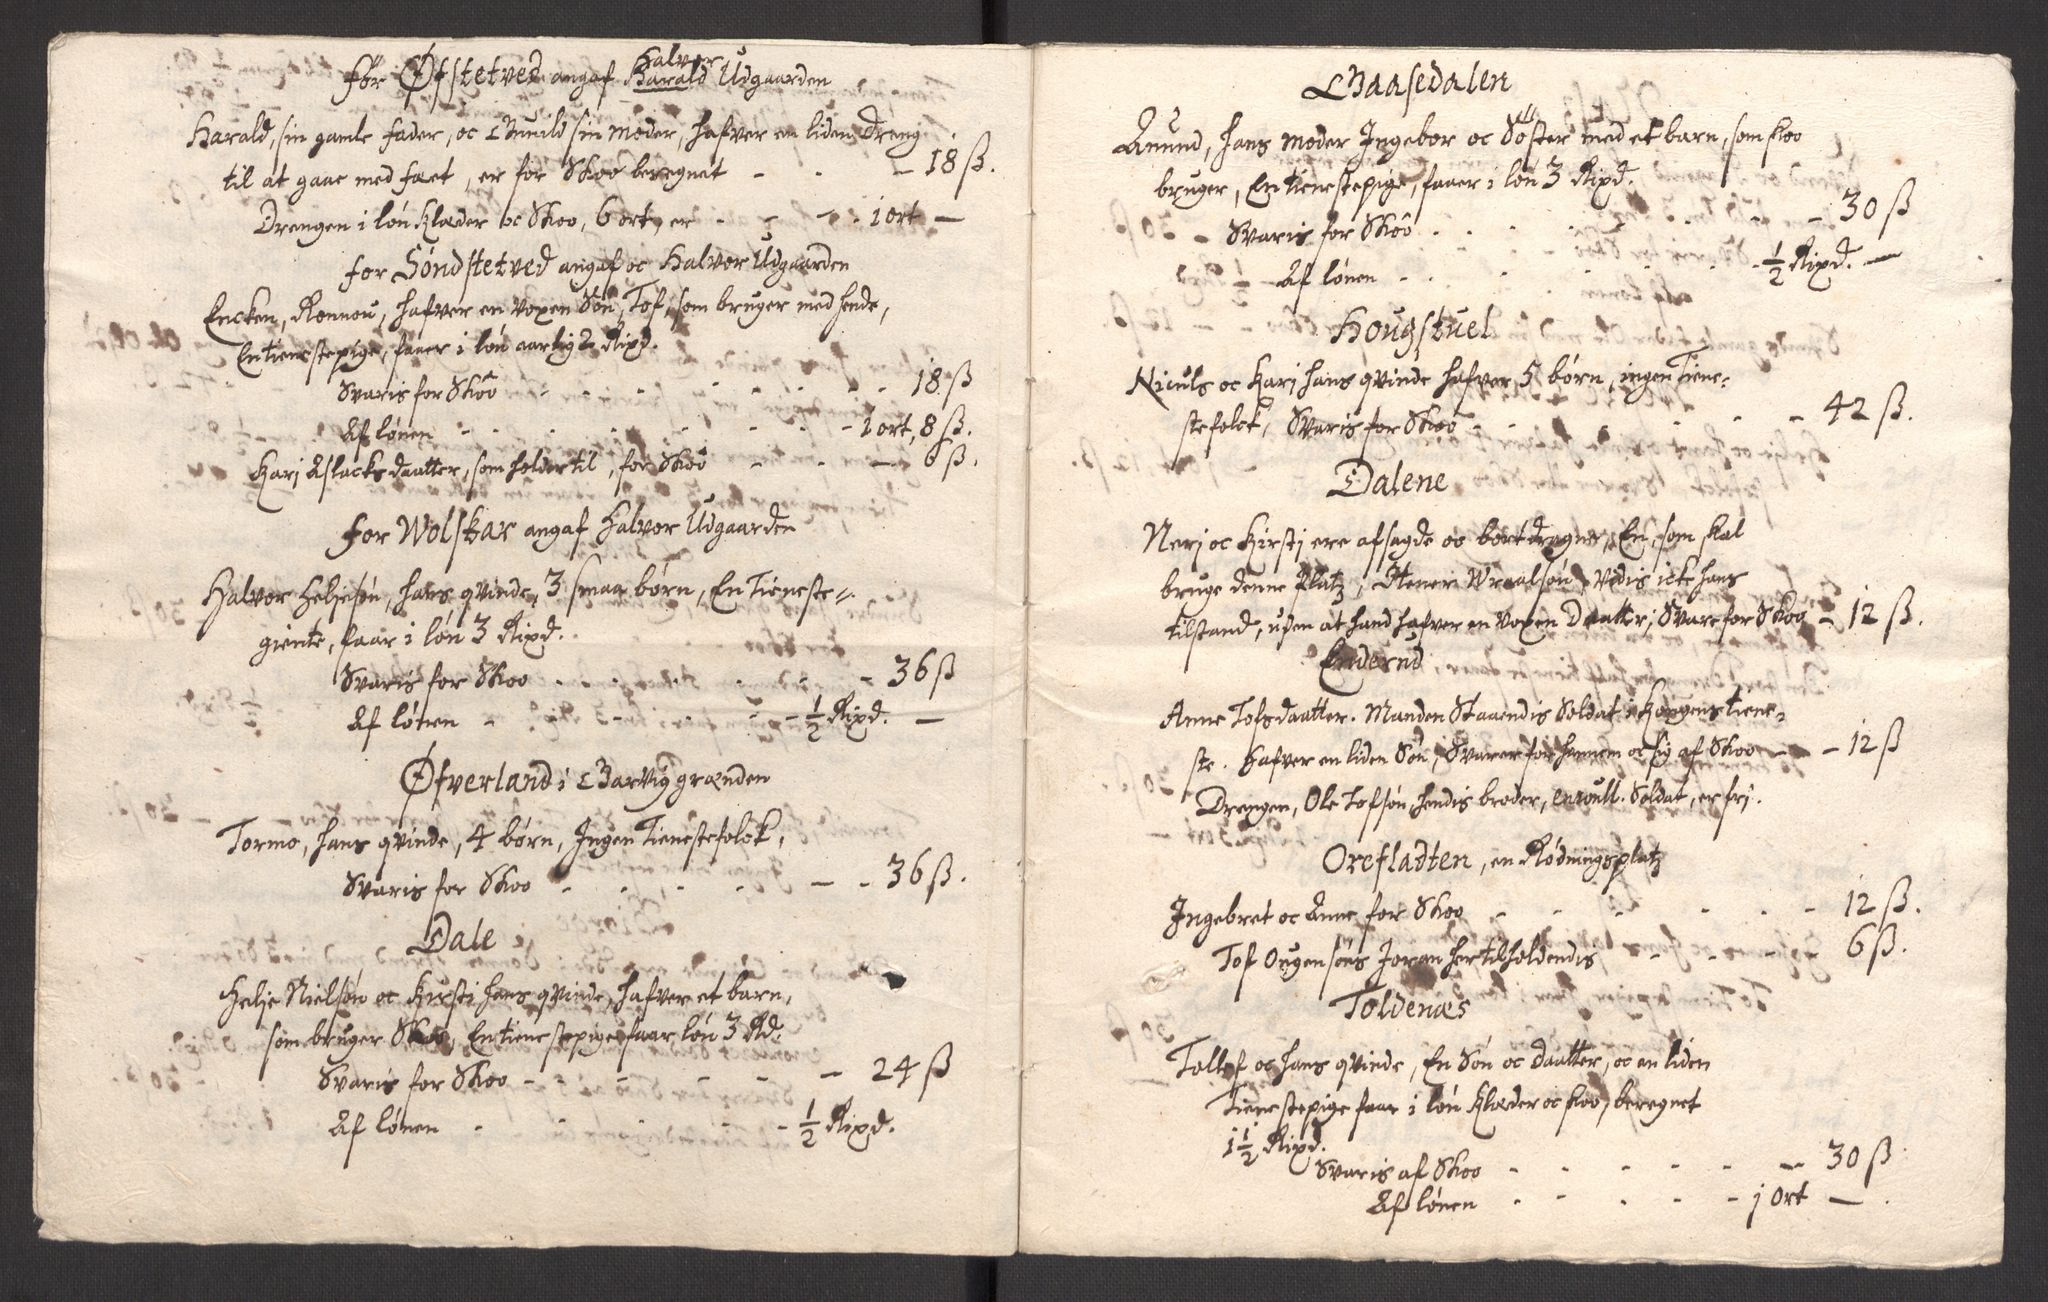 for Øfstetved angaf Halvor Harald Udgaarden
Harald, sin gamle fader, oc Gunild sin moder, hafver en liden dreng
til at gaae med fæet, er for Skoo beregnet - - - 18 ß.
Drengen i løn Klæder oc Skoo, 6 ort, er - - - 1 ort —
for Søndstetved angaf oc Halvor Udgaarden
Encken, Rønnou, hafver en voxen Søn, Tof, som bruger med hende,
En tienestepige, faaer i løn aarlig 2 Rixd.
Svaris for Skoo - - - - - - - 18 ß
Af lønen - - - - - - 1 ort, 8 ß.
Kari Aslacksdaatter, som holder til, for Skoo - - - 6 ß.
for Wolskar angaf Halvor Udgaarden
Halvor Heljesøn, hans qvinde, 3 smaa børn, En Tieneste-
giente, faar i løn 3 Rixd.
Svaris for Skoo - - - - - - 36 ß
Af lønen - - - - - ½ Rixd. —
Øfverland i Barvig grænden
Tormo, hans qvinde, 4 børn, Ingen Tienestefolck,
Svaris for Skoo - - - - - - 36 ß.
Dale
Helje Nielsøn oc Kirsti hans qvinde, hafver et barn,
som bruger Skoo, En tienestepige faar løn 3 Rd.
Svaris for Skoo - - - - - - 24 ß
Af lønen - - - - - ½ Rixd.
Baasedalen
Anund, hans moder Ingebor oc Søster med et barn, som skoo
bruger, En tienestepige, faaer i løn 3 Rixd.
Svaris for Skoo - - - - - - 30 ß
Af lønen - - - - - - ½ Rixd. —
Hougstuel
Niculs oc Kari hans qvinde hafver 5 børn, ingen Tiene-
stefolck, Svaris for Skoo - - - - 42 ß.
Dalene
Neri oc Kirsti ere afsagde oc bortdragne, En, som skal
bruge denne Platz, Stener Wraalsøn, vidis icke hans
tilstand, uden at hand hafver en voxen Daatter, Svare for Skoo - 12 ß.
Enderud
Anne Tofsdaatter. Manden Staaendis Soldat i Kongens tiene-
ste. Hafver en liden Søn, Svarer for hannem oc sig af Skoo - - 12 ß
Drengen, Ole Tofsøn, hendis broder, enroull. Soldat, er fri.
Orefladten, en Rødningsplatz
Ingebret oc Anne for Skoo - - - - - - 12 ß.
Tof Ougensøns Joran her tilholdendis - - - - 6 ß.
Toldenæs
Tollef oc hans qvinde, En Søn oc daatter, oc en liden
Tienestepige faar i løn Klæder oc skoo, beregnet
1½ Rixd.
Svaris af Skoo - - - - - - 30 ß
Af lønen - - - - - 1 Ort —.